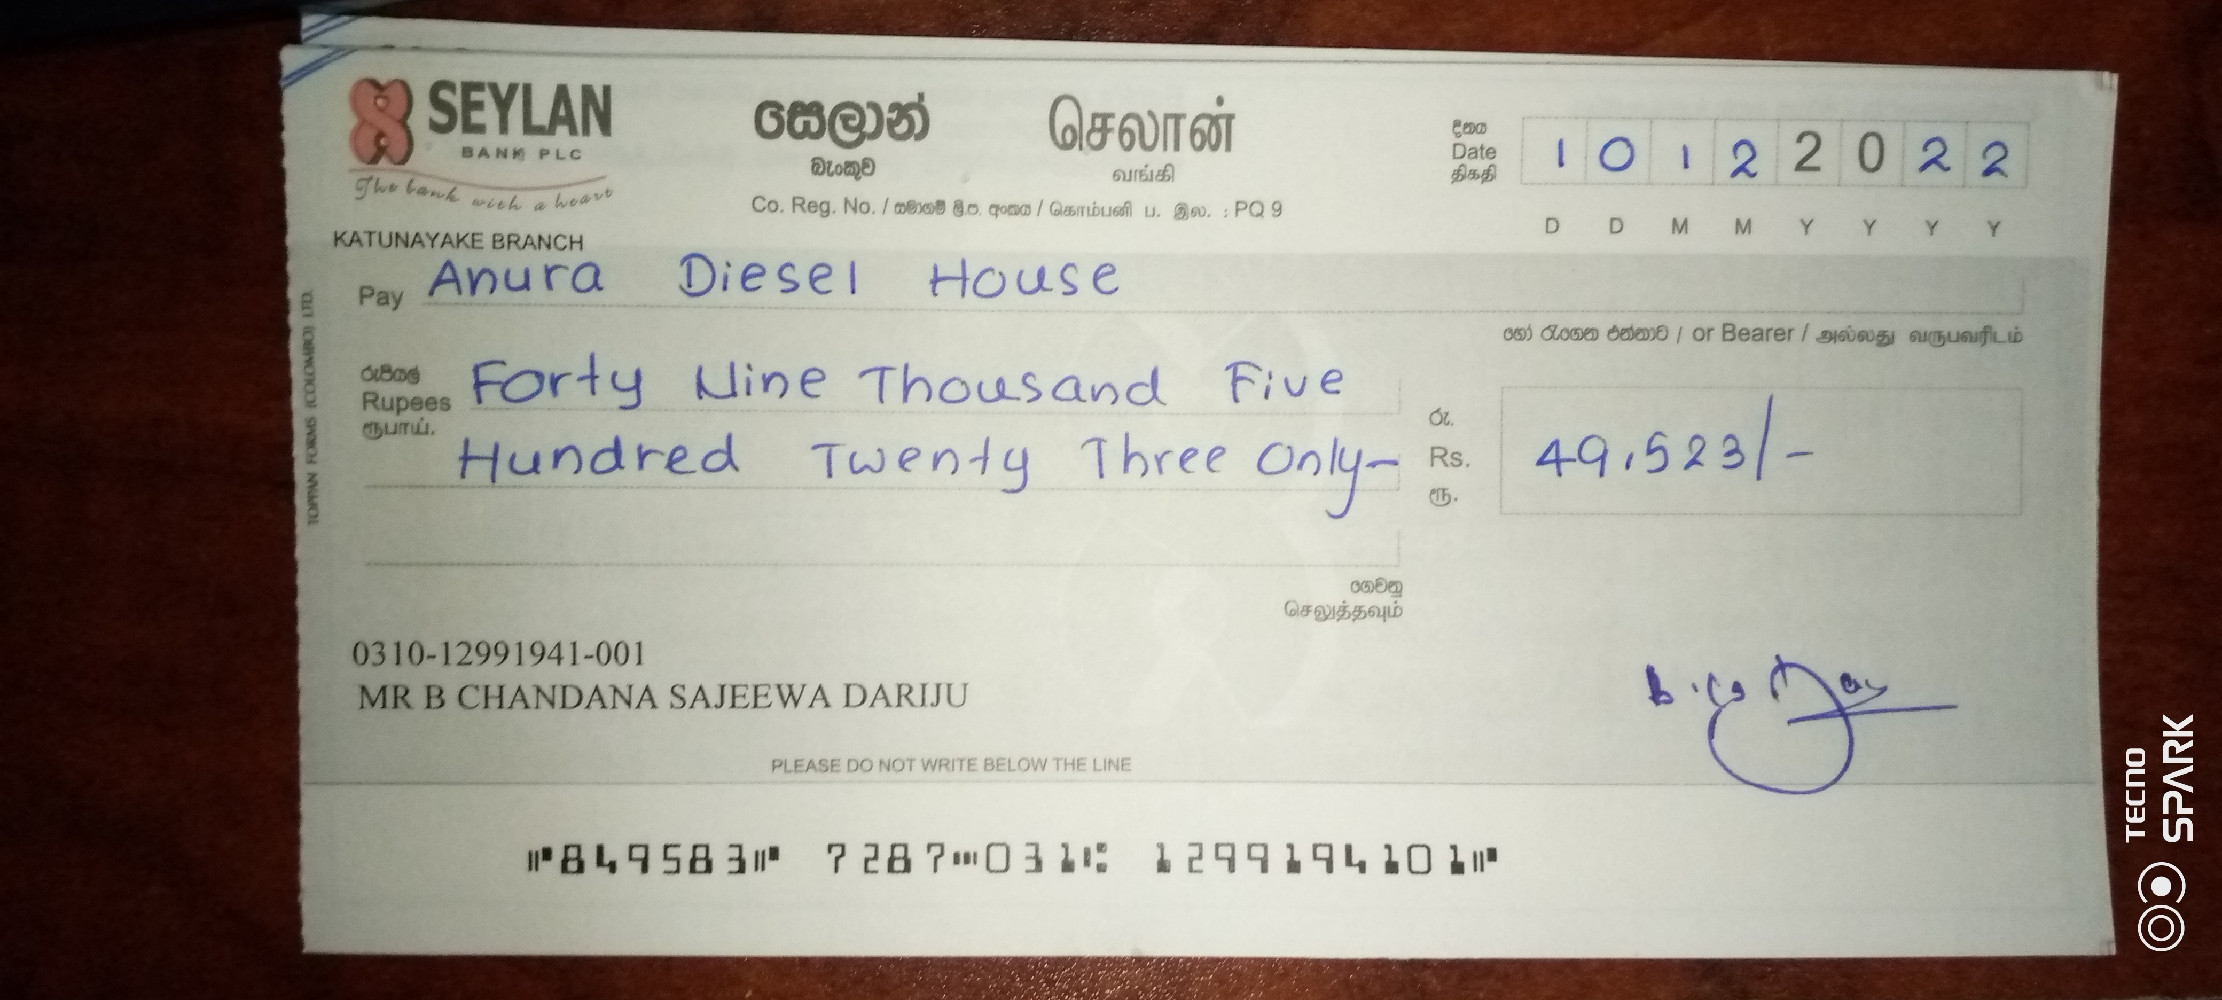 SEYLAN
BANK PLC
The bank with a heart
සෙලාන්
බැංකුව
செலான்
வங்கி
Co. Reg. No. / සමාගම් ලි.ප. අංකය / கொம்பனி ப. இல. : PQ 9
දිනය
Date
திகதி
1 0 1 2 2 0 2 2
D D M M Y Y Y Y
KATUNAYAKE BRANCH
Pay Anura Diesel House
හෝ රැගෙන එන්නාට / or Bearer / அல்லது வருபவரிடம்
රුපියල්
Rupees
ரூபாய்.
Forty Nine Thousand Five
Hundred Twenty Three Only-
රු.
Rs.
ரூ.
49,523/-
ගෙවනු
செலுத்தவும்
0310-12991941-001
MR B CHANDANA SAJEEWA DARIJU
PLEASE DO NOT WRITE BELOW THE LINE
⑈849583⑈ 7287⑉031⑆ 1299194101⑈
TOPPAN FORMS (COLOMBO) LTD.
TECNO
SPARK